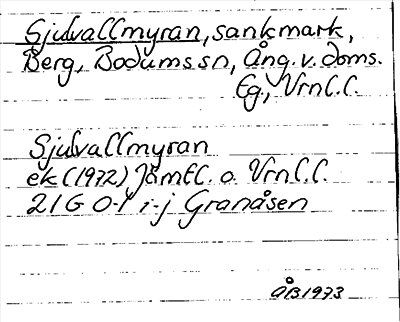 Sjulvallmyran, sankmark,
Berg, Bodums sn, Ång. v. doms.
Eg, Vrnl.l.
Sjulvallmyran
ek (1972) Jämtl. o. Vrnl.l.
21G 0-1 i-j Granåsen
ÅB 1973